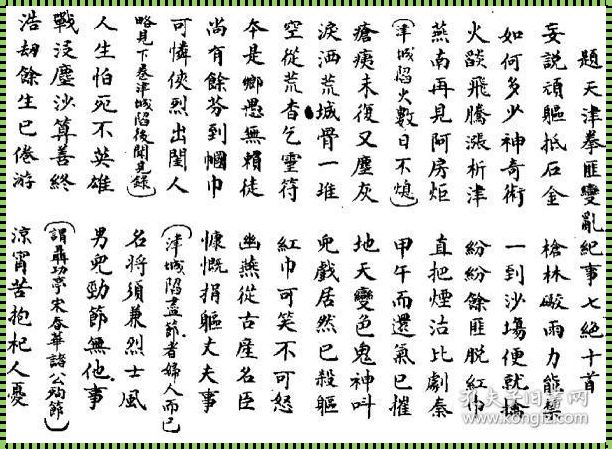 題天津拳匪變亂紀事七絕十首
妄說頑軀抵石金　槍林礮雨力能禁
如何多少神奇術　一到沙場便就擒
火燄飛騰漲析津　紛紛餘匪脫紅巾
燕南再見阿房炬　直把煙沽比劇秦
（津城陷火數日不熄）　甲午而還氣已摧
瘡痍未復又塵灰　地天變色鬼神叫
淚洒荒城骨一堆　兒戲居然已殺軀
空從荒杳乞靈符　紅巾可笑不可怒
本是鄉愚無賴徒　幽燕從古産名臣
尚有餘芬到幗巾　慷慨捐軀丈夫事
可憐俠烈出閨人　（津城陷盡節者婦人而已
略見下卷津城陷後聞見錄）　名將須兼烈士風
人生怕死不英雄　男兒勁節無他事
戰沒塵沙算善終　（謂聶功亭宋春華諸公殉節）
浩劫餘生已倦游　涼宵苦抱杞人憂
孔夫子旧书网
kongfz.com